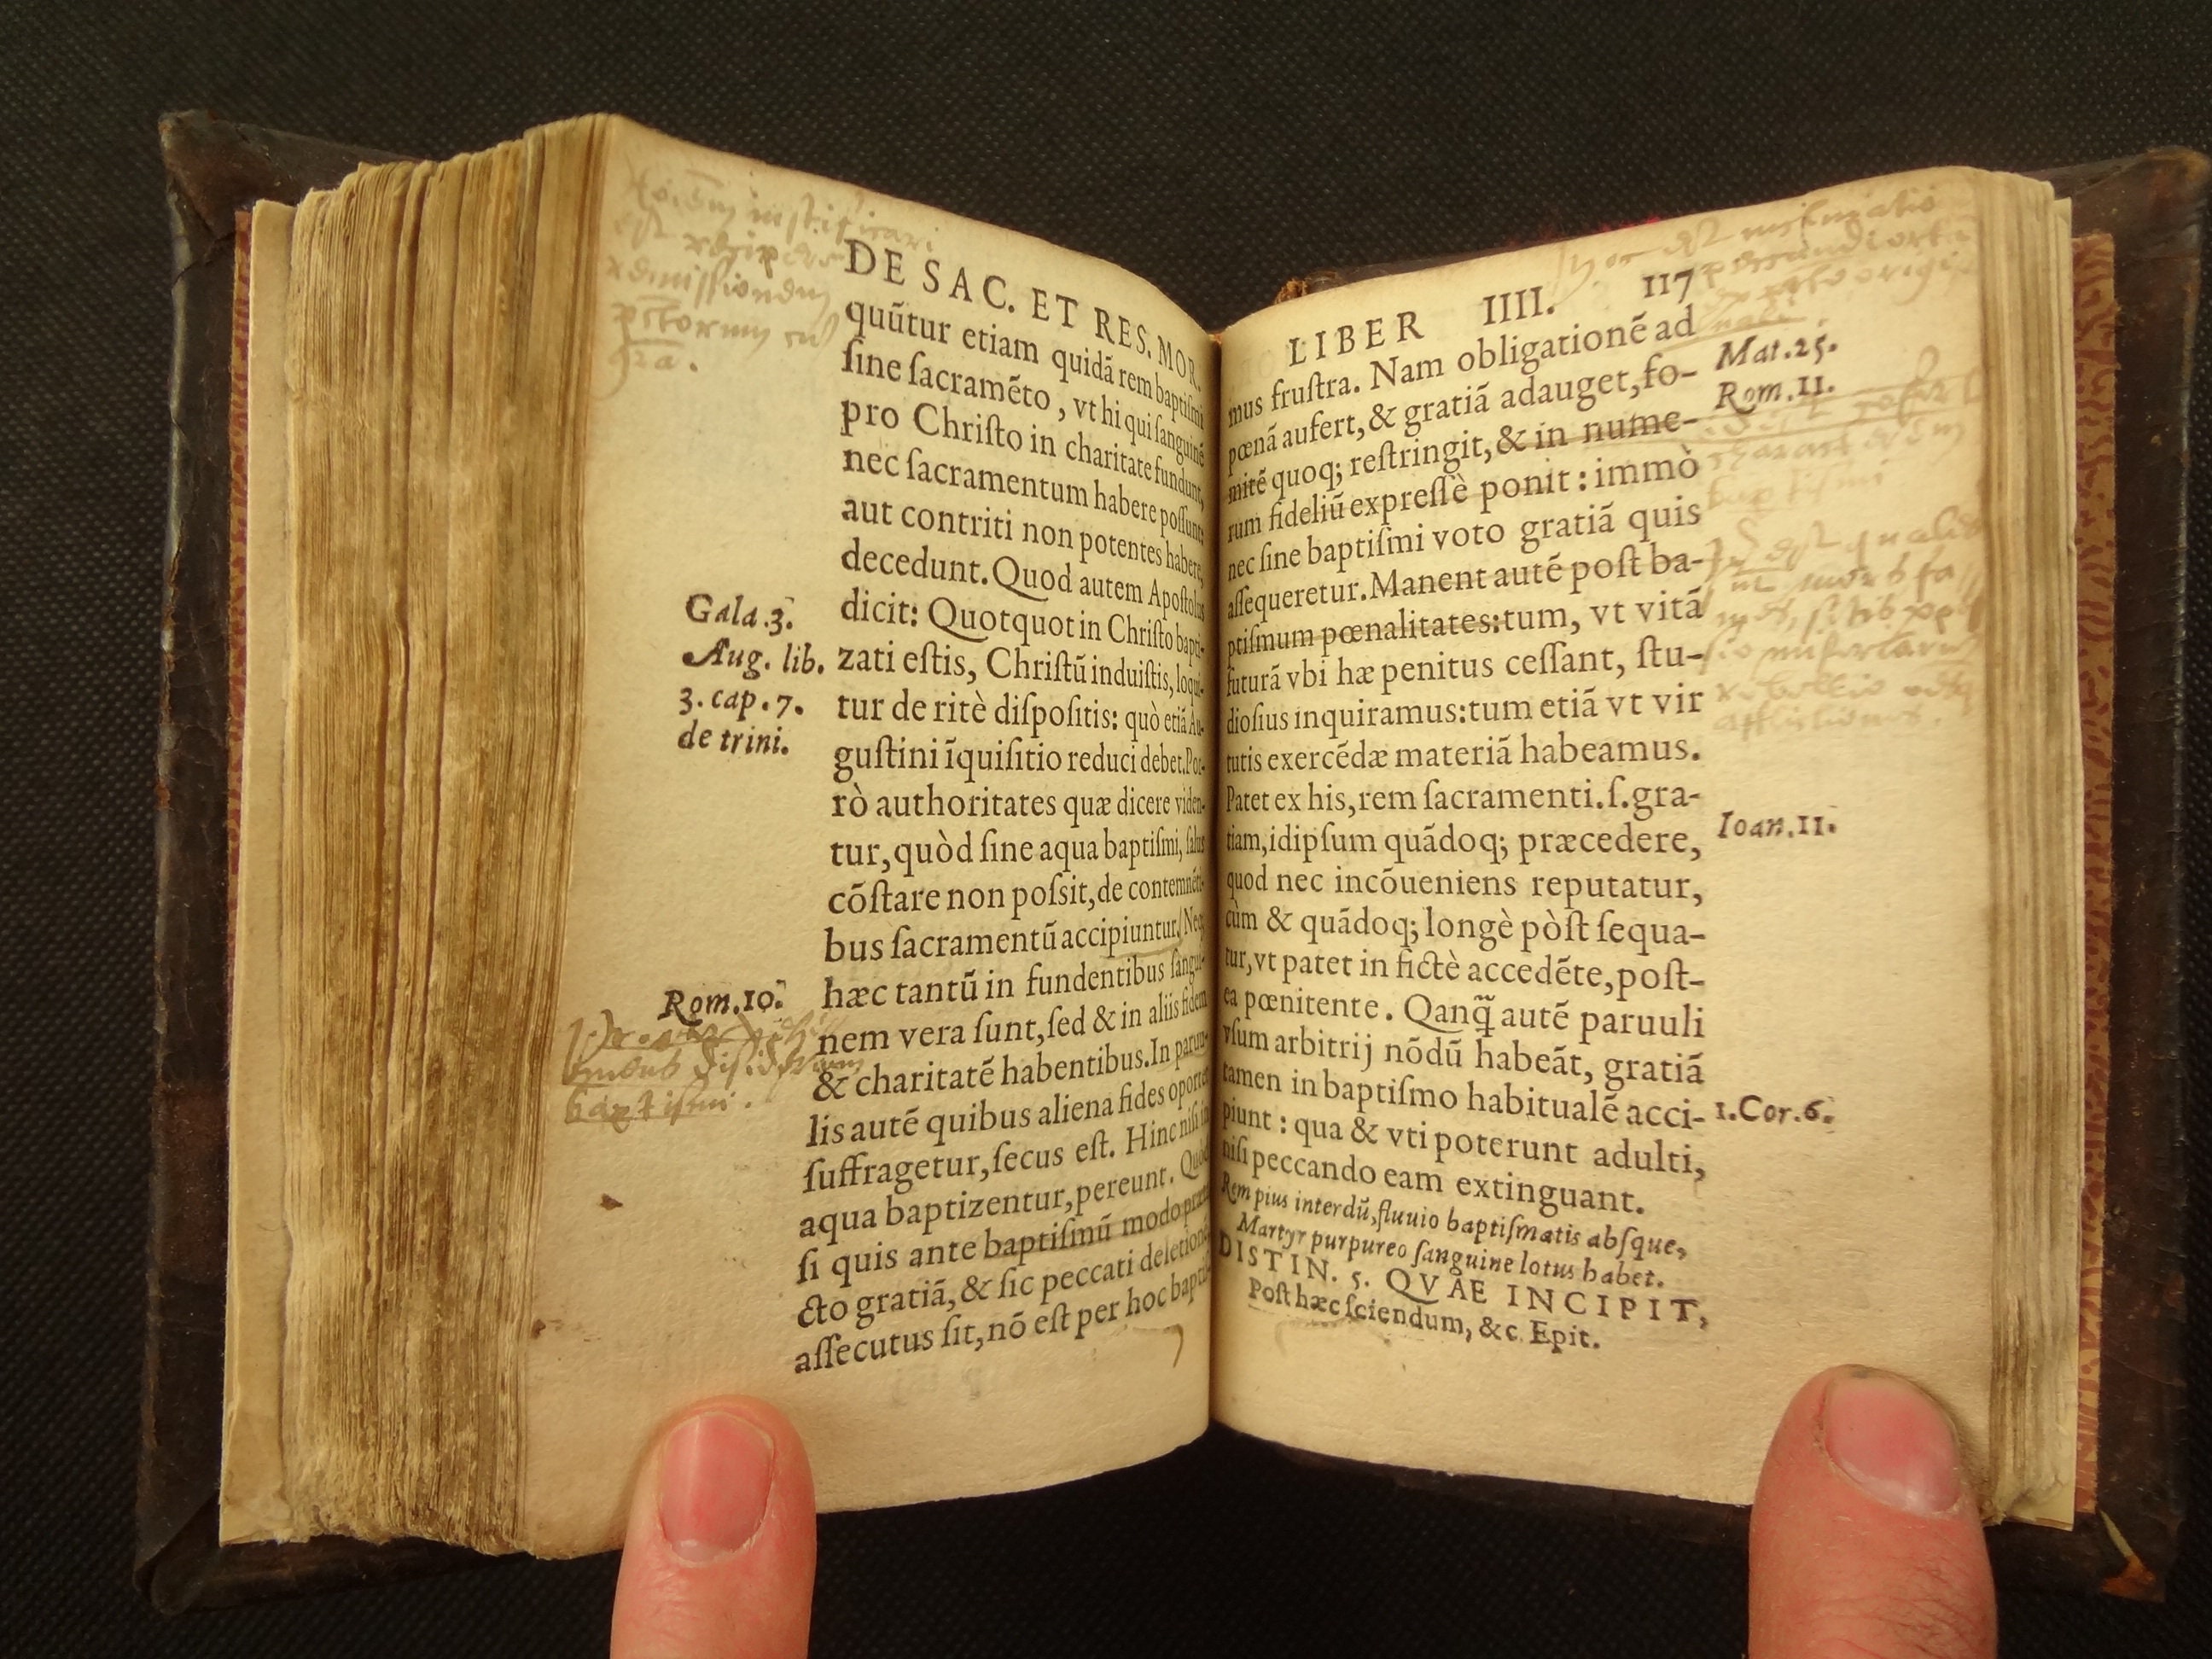 DE SAC. ET RES. MOR.
quũtur etiam quidã rem baptiſmi
ſine ſacramẽto, vt hi qui ſanguinẽ
pro Chriſto in charitate fundunt,
nec ſacramentum habere poſſunt:
aut contriti non potentes habere,
decedunt. Quod autem Apoſtolus
dicit: Quotquot in Chriſto bapti-
zati eſtis, Chriſtũ induiſtis, loqui-
tur de ritè diſpoſitis: quò etiã Au-
guſtini ĩquiſitio reduci debet. Por-
rò authoritates quæ dicere viden-
tur, quòd ſine aqua baptiſmi, ſalus
cõſtare non poſsit, de contemnẽti-
bus ſacramentũ accipiuntur. Neq;
hæc tantũ in fundentibus ſangui-
nem vera ſunt, ſed & in aliis fidem
& charitatẽ habentibus. In paruu-
lis autẽ quibus aliena fides oportet
ſuffragetur, ſecus eſt. Hinc niſi in
aqua baptizentur, pereunt. Quòd
ſi quis ante baptiſmũ modo præta-
cto gratiã, & ſic peccati deletionẽ
aſſecutus ſit, nõ eſt per hoc baptiſ-
Gala.3.
Aug. lib.
3. cap. 7.
de trini.
Rom.10.
baptiſmi.
LIBER IIII. 117
mus fruſtra. Nam obligationẽ ad
pœnã aufert, & gratiã adauget, fo-
mitẽ quoq; reſtringit, & in nume-
rum fideliũ expreſſè ponit: immò
nec ſine baptiſmi voto gratiã quis
aſſequeretur. Manent autẽ poſt ba-
ptiſmum pœnalitates: tum, vt vitã
futurã vbi hæ penitus ceſſant, ſtu-
dioſius inquiramus: tum etiã vt vir
tutis exercẽdæ materiã habeamus.
Patet ex his, rem ſacramenti. ſ. gra-
tiam, idipſum quãdoq; præcedere,
quod nec incõueniens reputatur,
cùm & quãdoq; longè pòſt ſequa-
tur, vt patet in fictè accedẽte, poſt-
ea pœnitente. Qanq̃ autẽ paruuli
vſum arbitrij nõdũ habeãt, gratiã
tamen in baptiſmo habitualẽ acci-
piunt: qua & vti poterunt adulti,
niſi peccando eam extinguant.
Rem pius interdũ, fluuio baptiſmatis abſque,
Martyr purpureo ſanguine lotus habet.
DISTIN. 5. QVAE INCIPIT,
Poſt hæc ſciendum, &c. Epit.
Mat.25.
Rom.11.
Ioan.11.
1.Cor.6.